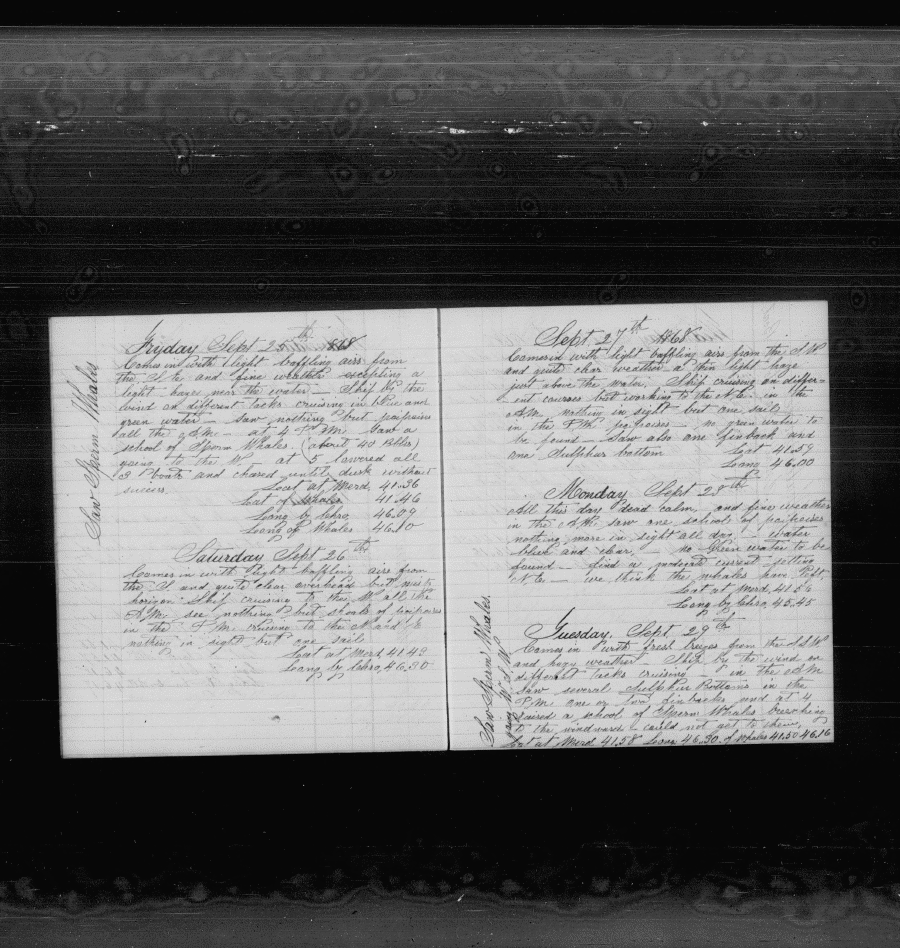 Saw Sperm Whales
Fryday Sept 25th 1868
Comes in with light baffling airs from
the S.E. and fine weather excepting a
light haze near the water — Ship by the
wind on different tacks cruising in blue and
green water — saw nothing but porpoises
all the A.M. — at 4 P.M. saw a
school of Sperm Whales (about 40 Bbls)
going to the W. at 5 lowered all
3 boats and chased until dusk without
success. Lat at Merd 41.36
Lat of Whales 41.46
Long by Chro, 46.09
Long of Whales 46.10
Saturday Sept 26th
Comes in with light baffling airs from
the S. and quite clear overhead but misty
horizon Ship cruising to the W all the
A.M. see nothing but shoals of
in the P.M. cruising to the N and E
nothing in sight but one sail
Lat at Merd 41.49
Long by Chro, 46.20
Sept 27th 1868
Comes in with light baffling airs from the S.W
and quite clear weather a thin light haze
just above the water. Ship cruising on differ-
ent courses but working to the N.E. in the
A.M. nothing in sight but one sail
in the P.M. porpoises — no green water to
be found — Saw also one finback and
one Sulphur bottom Lat 41.59
Long 46.00
Monday Sept 28th
All this day dead calm, and fine weather
in the A.M. saw one schools of porpoises
nothing more in sight all day — water
blue and clear — no Green water to be
found — find a moderate current setting
N.E — we think the whales have left,
Lat at Merd, 41.56
Long by Chro, 45.45
Saw Sperm Whales.
going to S.W
Tuesday, Sept 29th
Comes in with fresh breezes from the S.S.W
and hazy weather — Ship by the wind on
different tacks cruising in the A.M
saw several Sulphur Bottoms in the
P.M. one or two finbacks and at 4
raised a school of Sperm Whales breaching
to the windward — could not get to them,
Lat at Merd 41.58 Long 46.30 of Whales 41.50 46.16